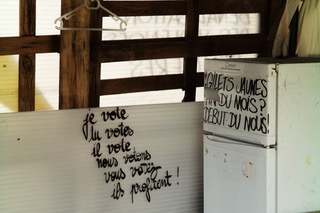 je vote
tu votes
il vote
nous votons
vous votez
ils profitent !
GILETS JAUNES
FIN DU MOIS ?
DEBUT DU NOUS !